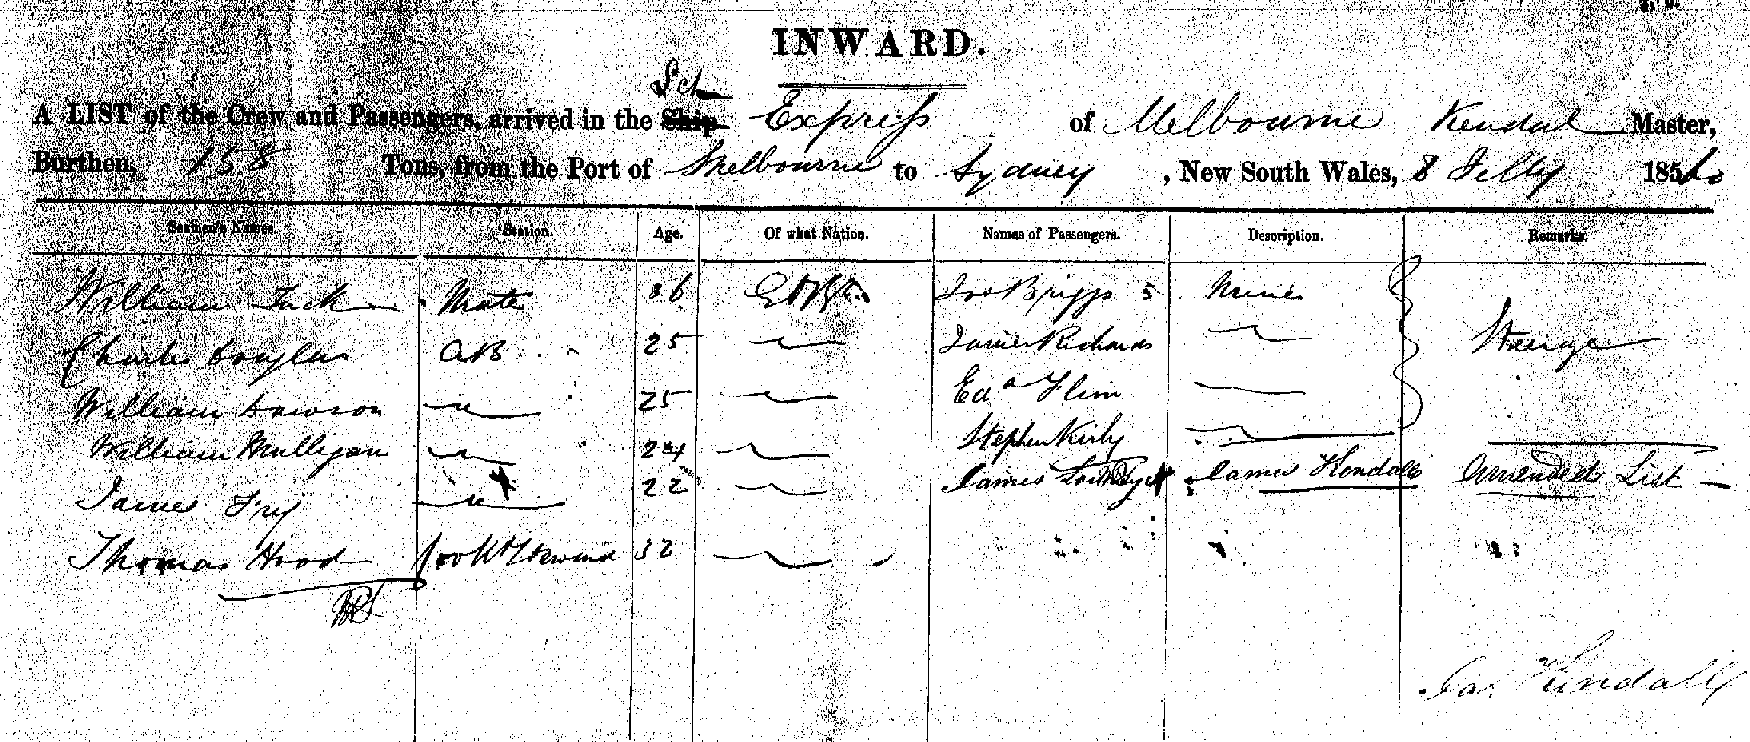 INWARD.
Sch
A LIST of the Crew and Passengers, arrived in the Ship Express of Melbourne Kendal Master,
Burthen, 158 Tons, from the Port of Melbourne to Sydney, New South Wales, 8 Felby 185
Seamen's Names. Station. Age. Of what Nation. Names of Passengers. Description. Remarks.
William Tuck Mate 36 Briggs 5
Charles Douglas AB 25 James Richards Steerage
William Dawson " 25 Flinn
William Mulligan " 24 Stephen Kirby
James Fry " 22 James James Kendall Amended List
Thomas Hood Cook & Steward 32
Jas. Kendall